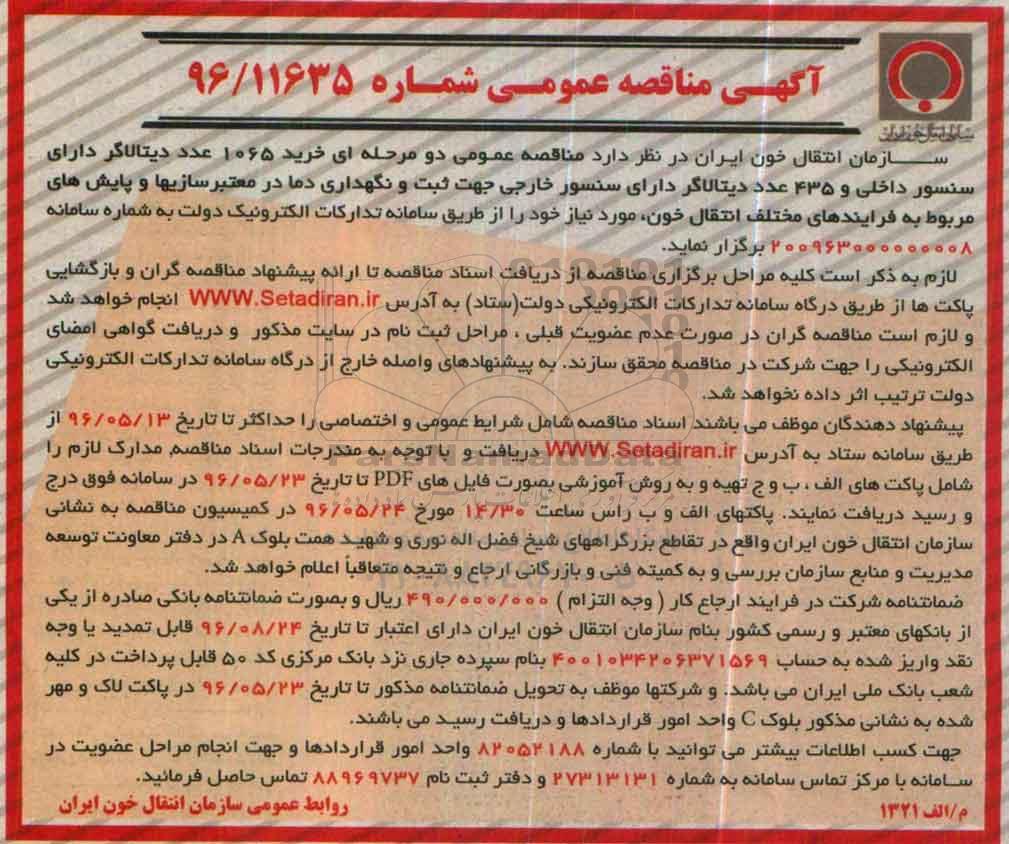 آگهی مناقصه عمومی شماره ۹۶/۱۱۶۳۵
سازمان انتقال خون ایران
سازمان انتقال خون ایران در نظر دارد مناقصه عمومی دو مرحله ای خرید ۱۰۶۵ عدد دیتالاگر دارای
سنسور داخلی و ۴۳۵ عدد دیتالاگر دارای سنسور خارجی جهت ثبت و نگهداری دما در معتبرسازیها و پایش های
مربوط به فرایندهای مختلف انتقال خون، مورد نیاز خود را از طریق سامانه تدارکات الکترونیک دولت به شماره سامانه
۲۰۰۹۶۳۰۰۰۰۰۰۰۰۰۸ برگزار نماید.
لازم به ذکر است کلیه مراحل برگزاری مناقصه از دریافت اسناد مناقصه تا ارائه پیشنهاد مناقصه گران و بازگشایی
پاکت ها از طریق درگاه سامانه تدارکات الکترونیکی دولت(ستاد) به آدرس WWW.Setadiran.ir انجام خواهد شد
و لازم است مناقصه گران در صورت عدم عضویت قبلی ، مراحل ثبت نام در سایت مذکور و دریافت گواهی امضای
الکترونیکی را جهت شرکت در مناقصه محقق سازند. به پیشنهادهای واصله خارج از درگاه سامانه تدارکات الکترونیکی
دولت ترتیب اثر داده نخواهد شد.
پیشنهاد دهندگان موظف می باشند اسناد مناقصه شامل شرایط عمومی و اختصاصی را حداکثر تا تاریخ ۹۶/۰۵/۱۳ از
طریق سامانه ستاد به آدرس WWW.Setadiran.ir دریافت و با توجه به مندرجات اسناد مناقصه, مدارک لازم را
شامل پاکت های الف ، ب و ج تهیه و به روش آموزشی بصورت فایل های PDF تا تاریخ ۹۶/۰۵/۲۳ در سامانه فوق درج
و رسید دریافت نمایند. پاکتهای الف و ب راس ساعت ۱۴/۳۰ مورخ ۹۶/۰۵/۲۴ در کمیسیون مناقصه به نشانی
سازمان انتقال خون ایران واقع در تقاطع بزرگراههای شیخ فضل اله نوری و شهید همت بلوک A در دفتر معاونت توسعه
مدیریت و منابع سازمان بررسی و به کمیته فنی و بازرگانی ارجاع و نتیجه متعاقباً اعلام خواهد شد.
ضمانتنامه شرکت در فرایند ارجاع کار ( وجه التزام ) ۴۹۰/۰۰۰/۰۰۰ ریال و بصورت ضمانتنامه بانکی صادره از یکی
از بانکهای معتبر و رسمی کشور بنام سازمان انتقال خون ایران دارای اعتبار تا تاریخ ۹۶/۰۸/۲۴ قابل تمدید یا وجه
نقد واریز شده به حساب ۴۰۰۱۰۳۴۲۰۶۳۷۱۵۶۹ بنام سپرده جاری نزد بانک مرکزی کد ۵۰ قابل پرداخت در کلیه
شعب بانک ملی ایران می باشد. و شرکتها موظف به تحویل ضمانتنامه مذکور تا تاریخ ۹۶/۰۵/۲۳ در پاکت لاک و مهر
شده به نشانی مذکور بلوک C واحد امور قراردادها و دریافت رسید می باشند.
جهت کسب اطلاعات بیشتر می توانید با شماره ۸۲۰۵۲۱۸۸ واحد امور قراردادها و جهت انجام مراحل عضویت در
سامانه با مرکز تماس سامانه به شماره ۲۷۳۱۳۱۳۱ و دفتر ثبت نام ۸۸۹۶۹۷۳۷ تماس حاصل فرمائید.
م/الف ۱۳۲۱
روابط عمومی سازمان انتقال خون ایران